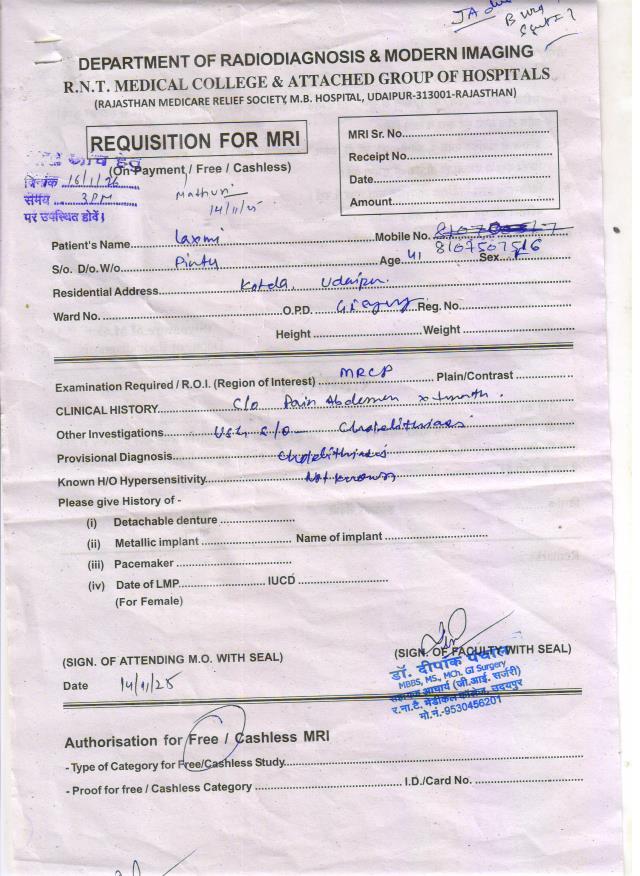 DEPARTMENT OF RADIODIAGNOSIS & MODERN IMAGING
R.N.T. MEDICAL COLLEGE & ATTACHED GROUP OF HOSPITALS
(RAJASTHAN MEDICARE RELIEF SOCIETY, M.B. HOSPITAL, UDAIPUR-313001-RAJASTHAN)
REQUISITION FOR MRI
(On Payment / Free / Cashless)
MRI Sr. No.
Receipt No.
Date
Amount
दिनांक
समय 3PM
पर उपस्थित होवें।
Patient's Name Laxmi Mobile No.
8107507516
S/o. D/o. W/o Pintu Age 41 Sex F
Residential Address Kotda, Udaipur.
Ward No. O.P.D. GI Surgery Reg. No.
Height Weight
Examination Required / R.O.I. (Region of Interest) MRCP Plain/Contrast
CLINICAL HISTORY C/o Pain Abdomen x 1 month.
Other Investigations USG s/o Cholelithiasis
Provisional Diagnosis. Cholelithiasis
Known H/O Hypersensitivity Not known
Please give History of -
(i) Detachable denture
(ii) Metallic implant Name of implant
(iii) Pacemaker
(iv) Date of LMP IUCD
(For Female)
(SIGN. OF ATTENDING M.O. WITH SEAL) (SIGN. OF FACULTY WITH SEAL)
डॉ. दीपाक पंचाल
MBBS, MS., MCh. GI Surgery
सहायक आचार्य (जी.आई. सर्जरी)
र.ना.टै. मेडीकल कॉलेज, उदयपुर
मो.नं.-9530456201
Date 14/11/25
Authorisation for Free / Cashless MRI
- Type of Category for Free/Cashless Study
- Proof for free / Cashless Category I.D./Card No.